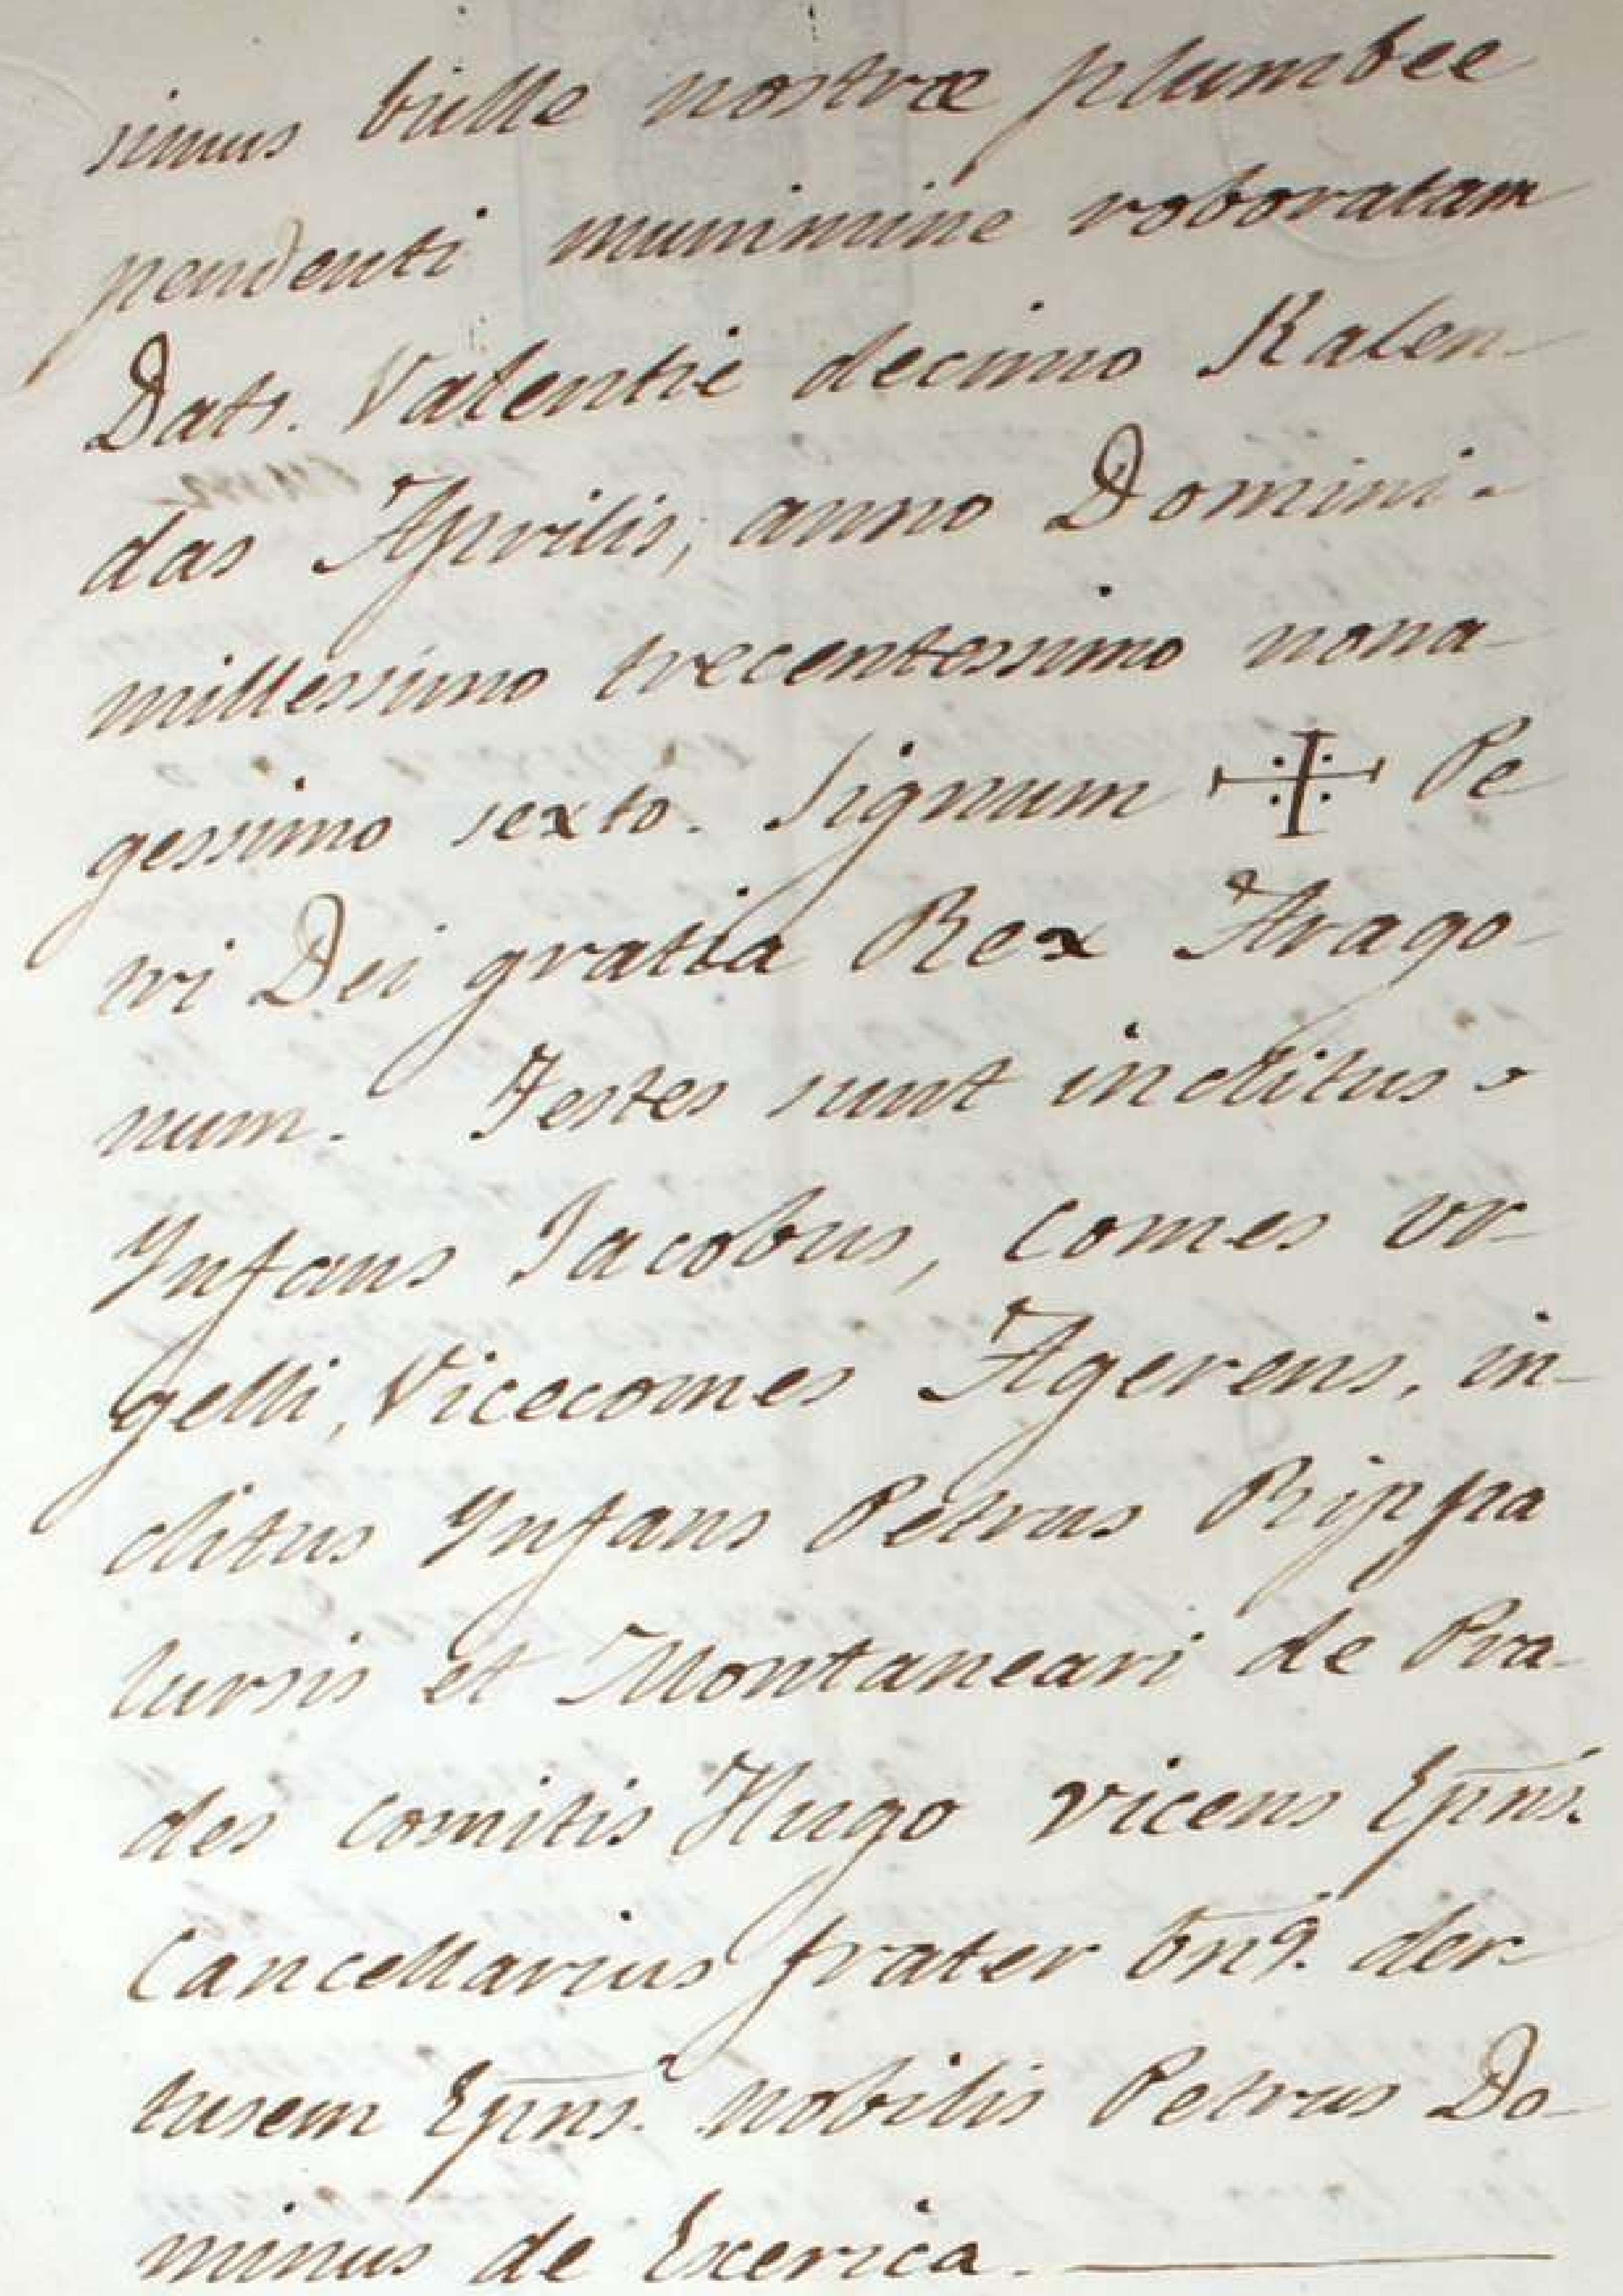 simus bulle nostræ plumbee
pendenti munimine roboratam
Datr. Valentie decimo Kalen-
das Aprilis, anno Domini.
millessimo trecentessimo nona-
gessimo sexto. Signum ✠ Pe
tri Dei gratia Rex Arago-
num. Testes sunt inclitus
Infans Jacobus, comes Ur-
gelli, Vicecomes Agerens, in-
clitus Infans Petrus Rippa
cursis et Montaneari de Pra-
des comitis Hugo vicens Epñs.
Cancellarius frater bñ9. der-
tusem Epñs. nobilis Petrus Do-
minus de Exerica.